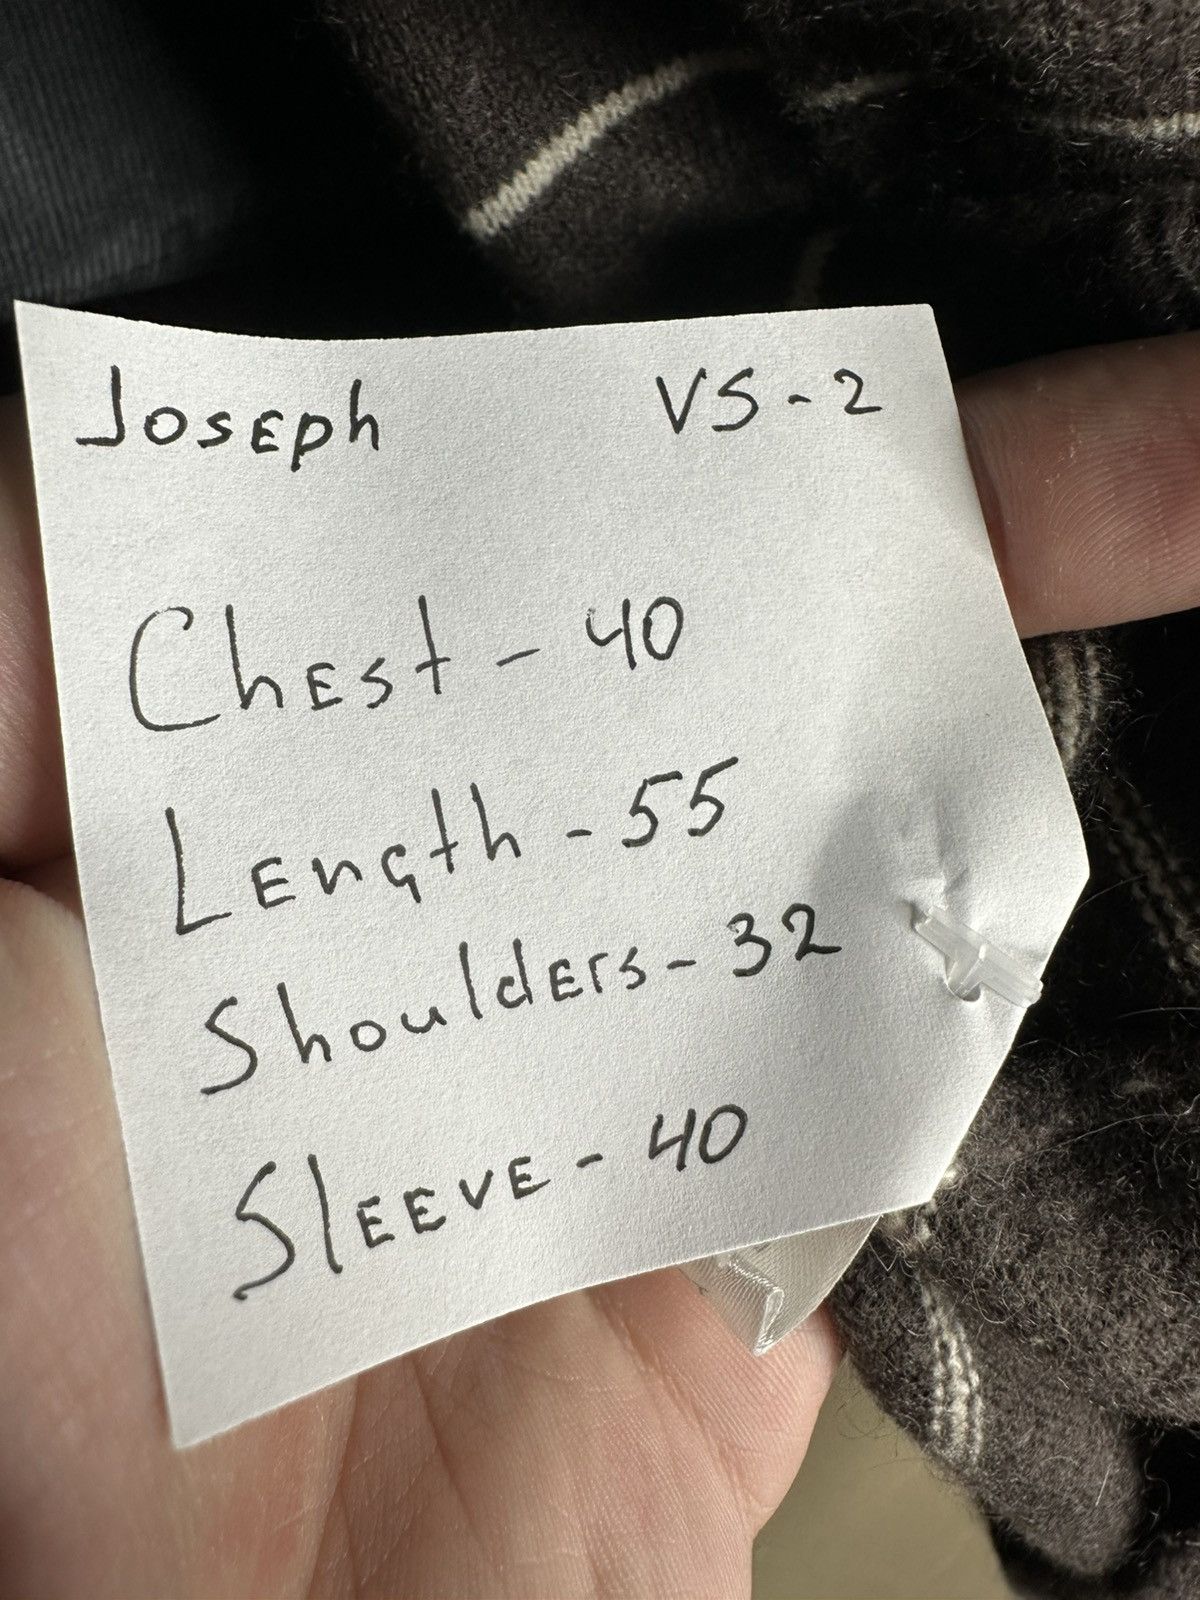 Joseph VS-2
Chest - 40
Length - 55
Shoulders - 32
Sleeve - 40